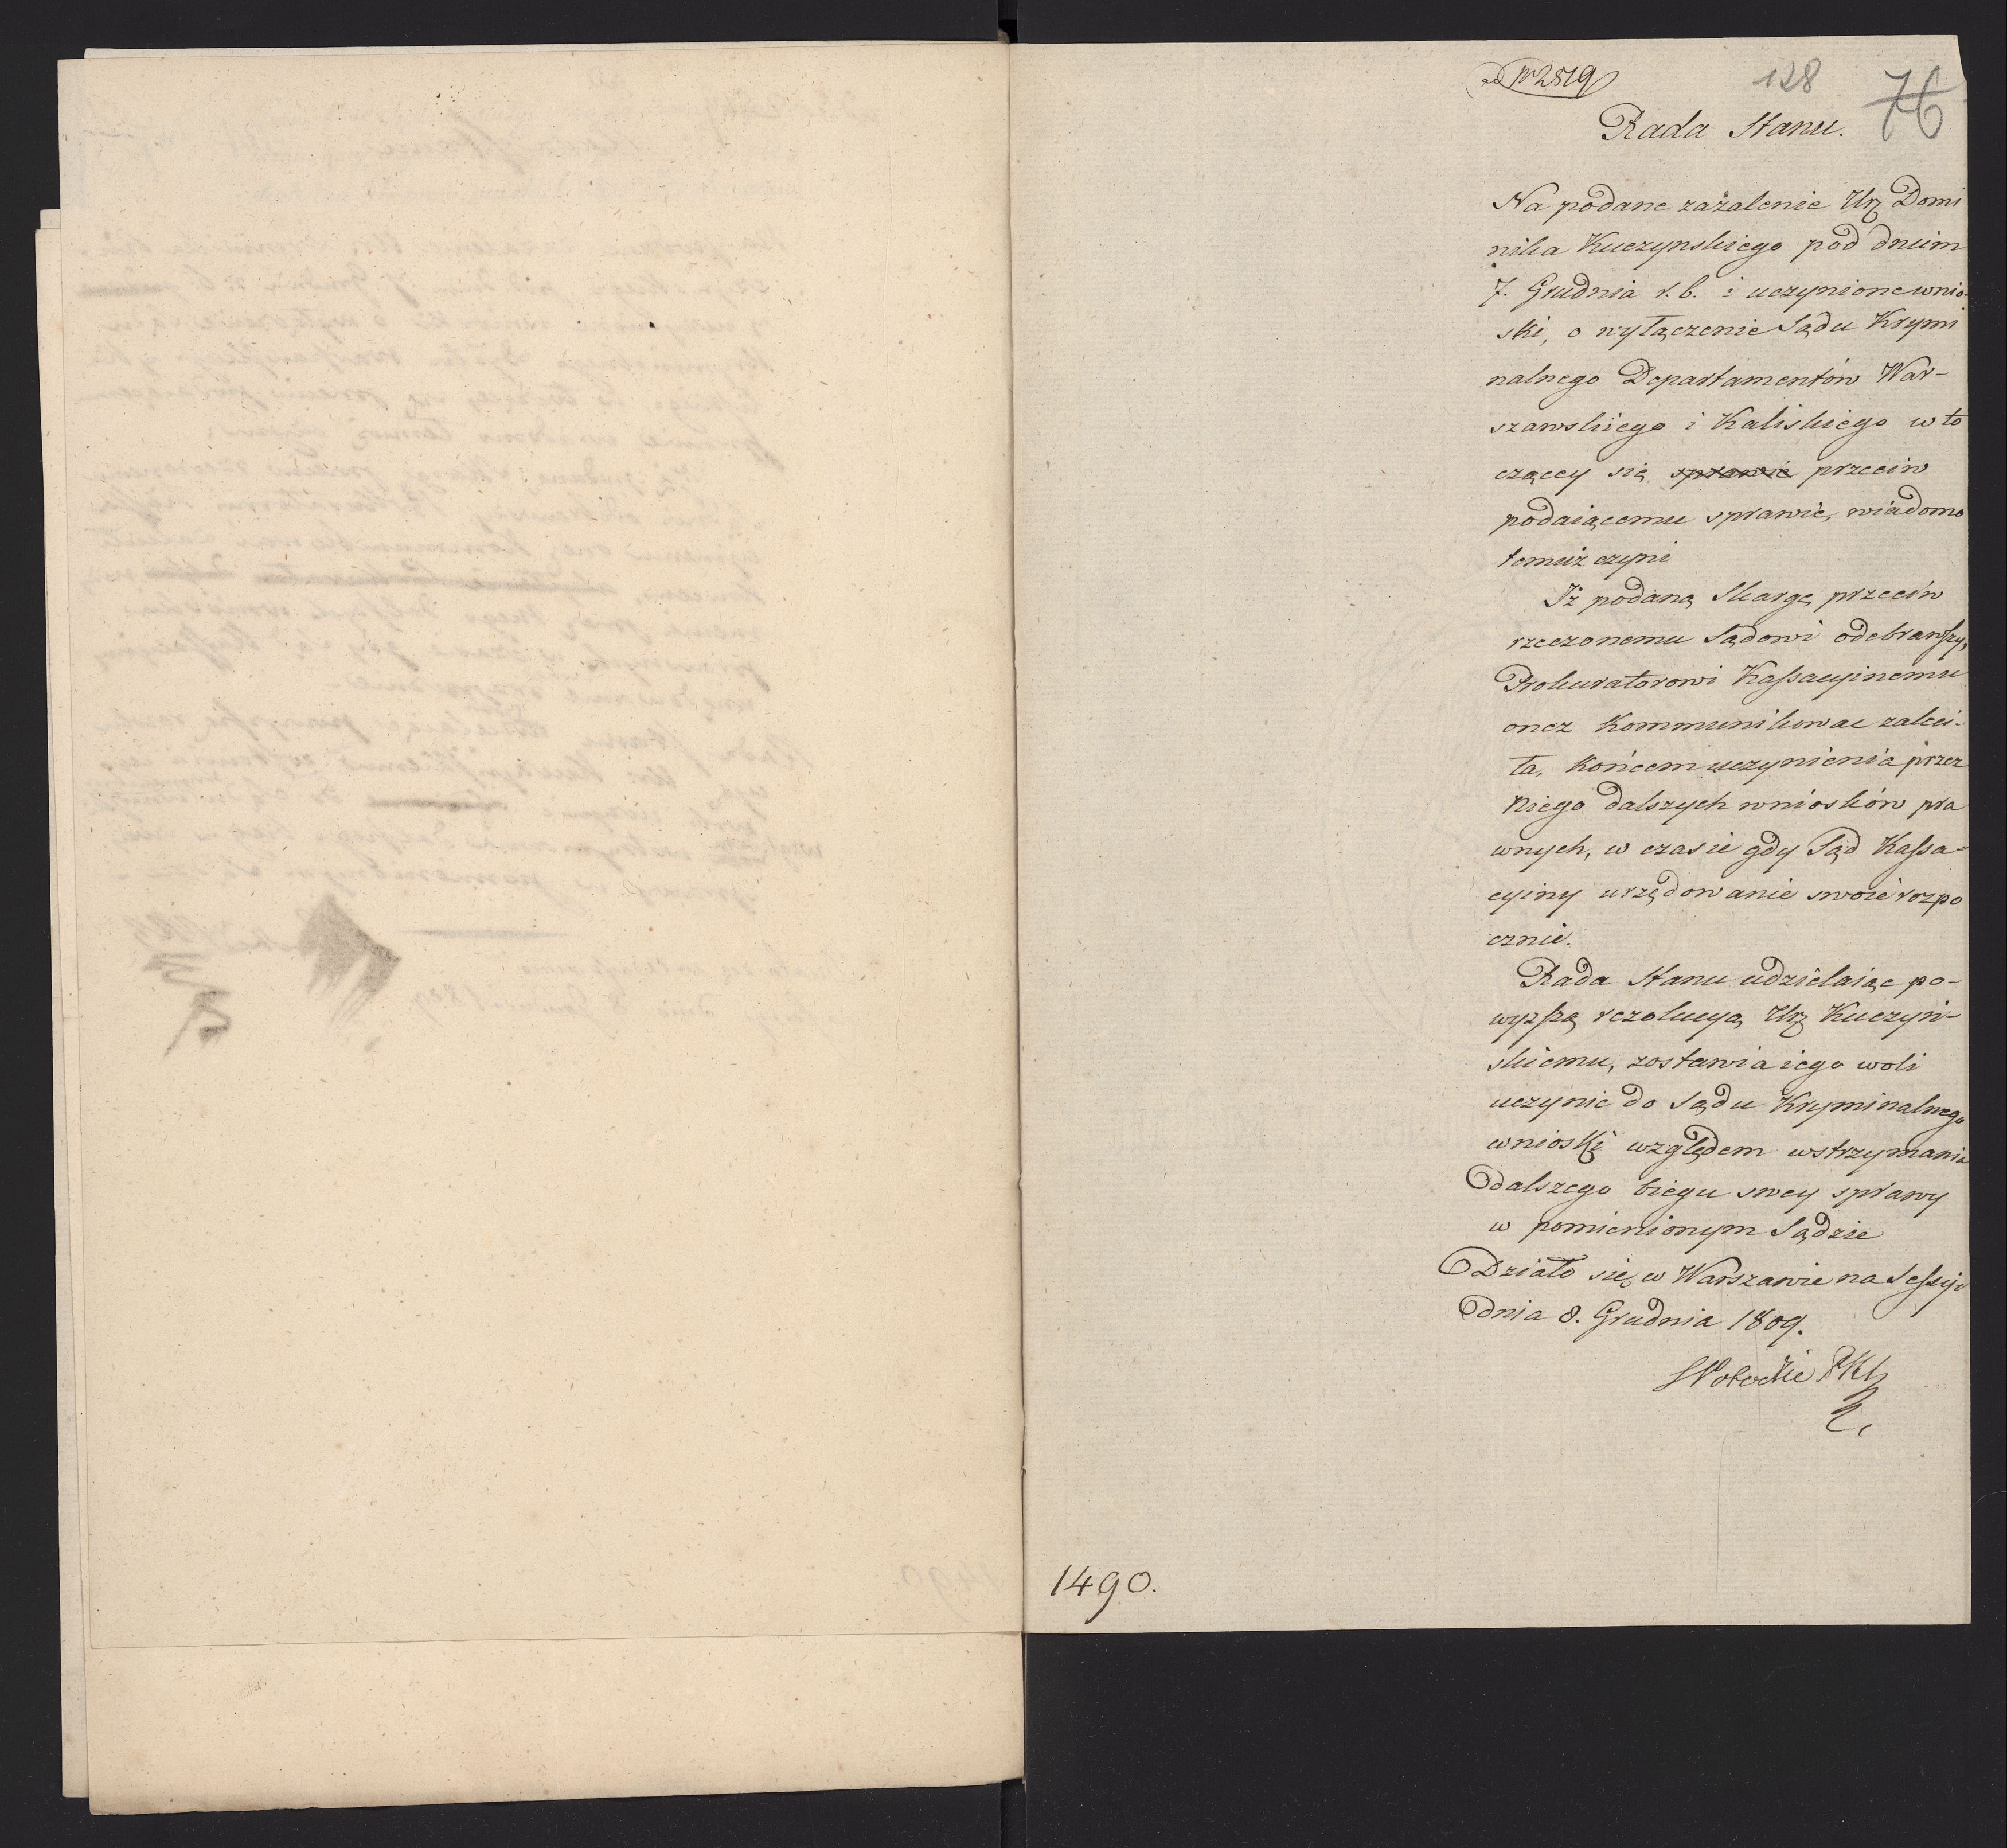 ad Nro 2519
128
76
Rada Stanu.
Na podane zażalenie Ur. Domi
nika Kuczynskiego pod dniem
7. Grudnia r. b. i uczynione wnio-
ski, o wyłączenie Sądu Krymi
nalnego Departamentów War-
szawskiego i Kaliskiego w to
czącey się sprawie przeciw
podaiącemu sprawie, wiadomo
temuż czyni
Iż podaną Skargę przeciw
rzeczonemu Sądowi odebrawszy,
Prokuratorowi Kassacyinemu
onez Kommunikowac zaleci-
ła, Końcem uczynienia przez
Niego dalszych wniosków pra
wnych, w czasie gdy Sąd Kassa-
cyiny urzędowanie swoie rozpo
cznie.
Rada Stanu udzielaiąc po-
wyższą rezolucyą Ur. Kuczyń-
skiemu, zostawia iego woli
uczynic do Sądu Kryminalnego
wnioski względem wstrzymania
dalszego biegu swey sprawy
w pomienionym Sądzie
Działo się w Warszawie na Sessyi
dnia 8. Grudnia 1809.
1490.